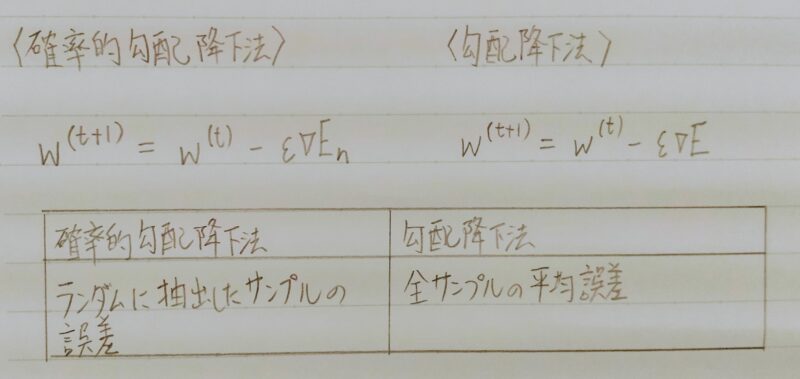 〈確率的勾配降下法〉 〈勾配降下法〉
w^(t+1) = w^(t) - ε∇E_n w^(t+1) = w^(t) - ε∇E
確率的勾配降下法 勾配降下法
ランダムに抽出したサンプルの 全サンプルの平均誤差
誤差